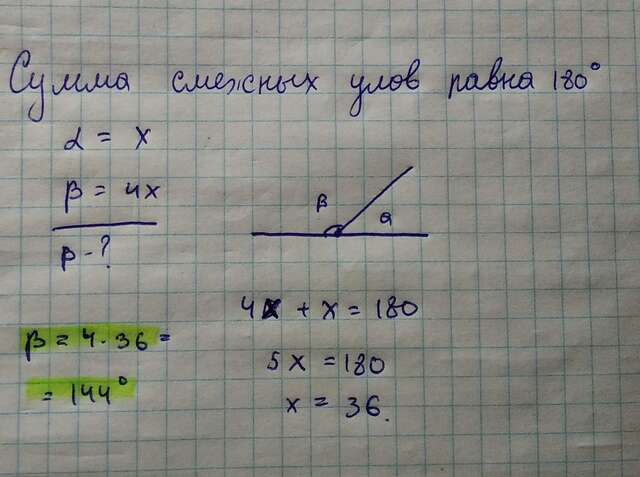 Сумма смежных улов равна 180°
α = x
β = 4x
β - ?
β
a
4x + x = 180
5x = 180
x = 36
β = 4 · 36 =
= 144°